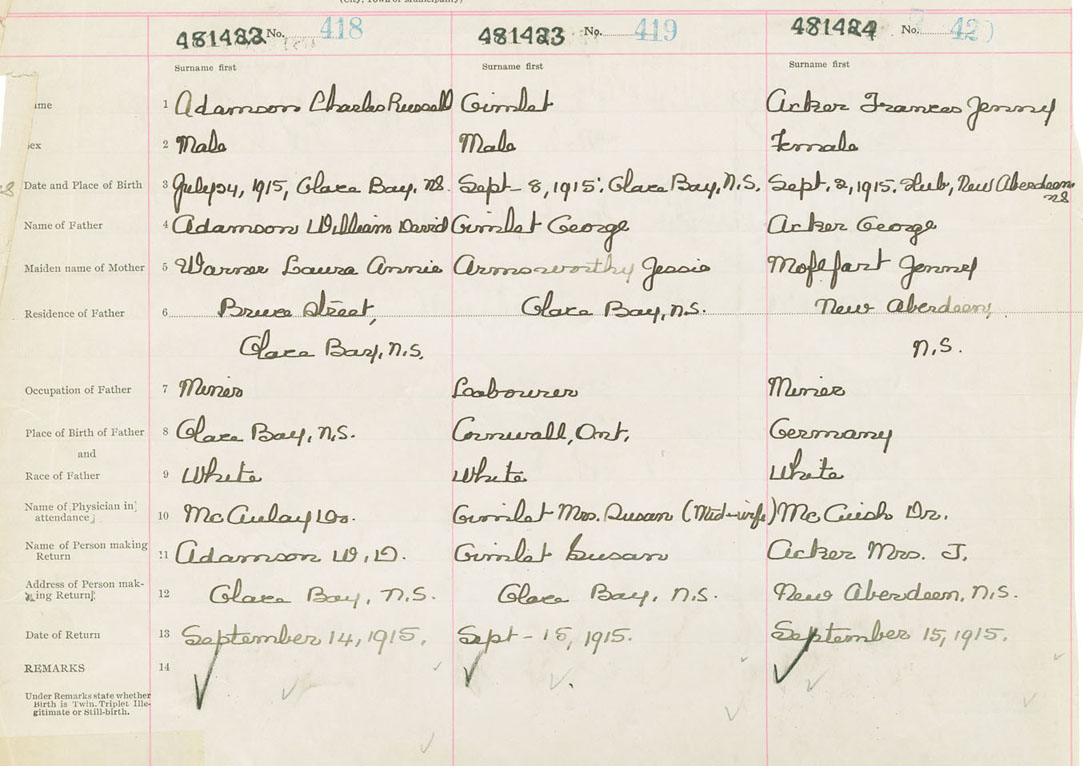 (City, Town or Municipality)
481422 No. 418 481423 No. 419 481424 No. 420
Surname first Surname first Surname first
ame 1 Adamson Charles Russell Gimlet Acker Frances Jenny
ex 2 Male Male Female
Date and Place of Birth 3 July 24, 1915, Glace Bay, NS. Sept- 8, 1915. Glace Bay, N.S. Sept. 2, 1915. Hub, New Aberdeen,
NS
Name of Father 4 Adamson William David Gimlet George Acker George
Maiden name of Mother 5 Warner Laura Annie Armsworthy Jessie Jenny
Residence of Father 6 Bruce Street, Glace Bay, N.S. New Aberdeen,
Glace Bay, N.S. N.S.
Occupation of Father 7 Miner Labourer Miner
Place of Birth of Father 8 Glace Bay, N.S. Cornwall, Ont. Germany
and
Race of Father 9 White White White
Name of Physician in
attendance 10 McAulay Dr. Gimlet Mrs. Susan (Mid-wife) McCuish Dr.
Name of Person making
Return 11 Adamson W. D. Gimlet Susan Acker Mrs. J.
Address of Person mak-
ing Return 12 Glace Bay, N.S. Glace Bay, N.S. New Aberdeen, N.S.
Date of Return 13 September 14, 1915. Sept- 15, 1915. September 15, 1915.
REMARKS 14
Under Remarks state whether
Birth is Twin. Triplet Ille-
gitimate or Still-birth.